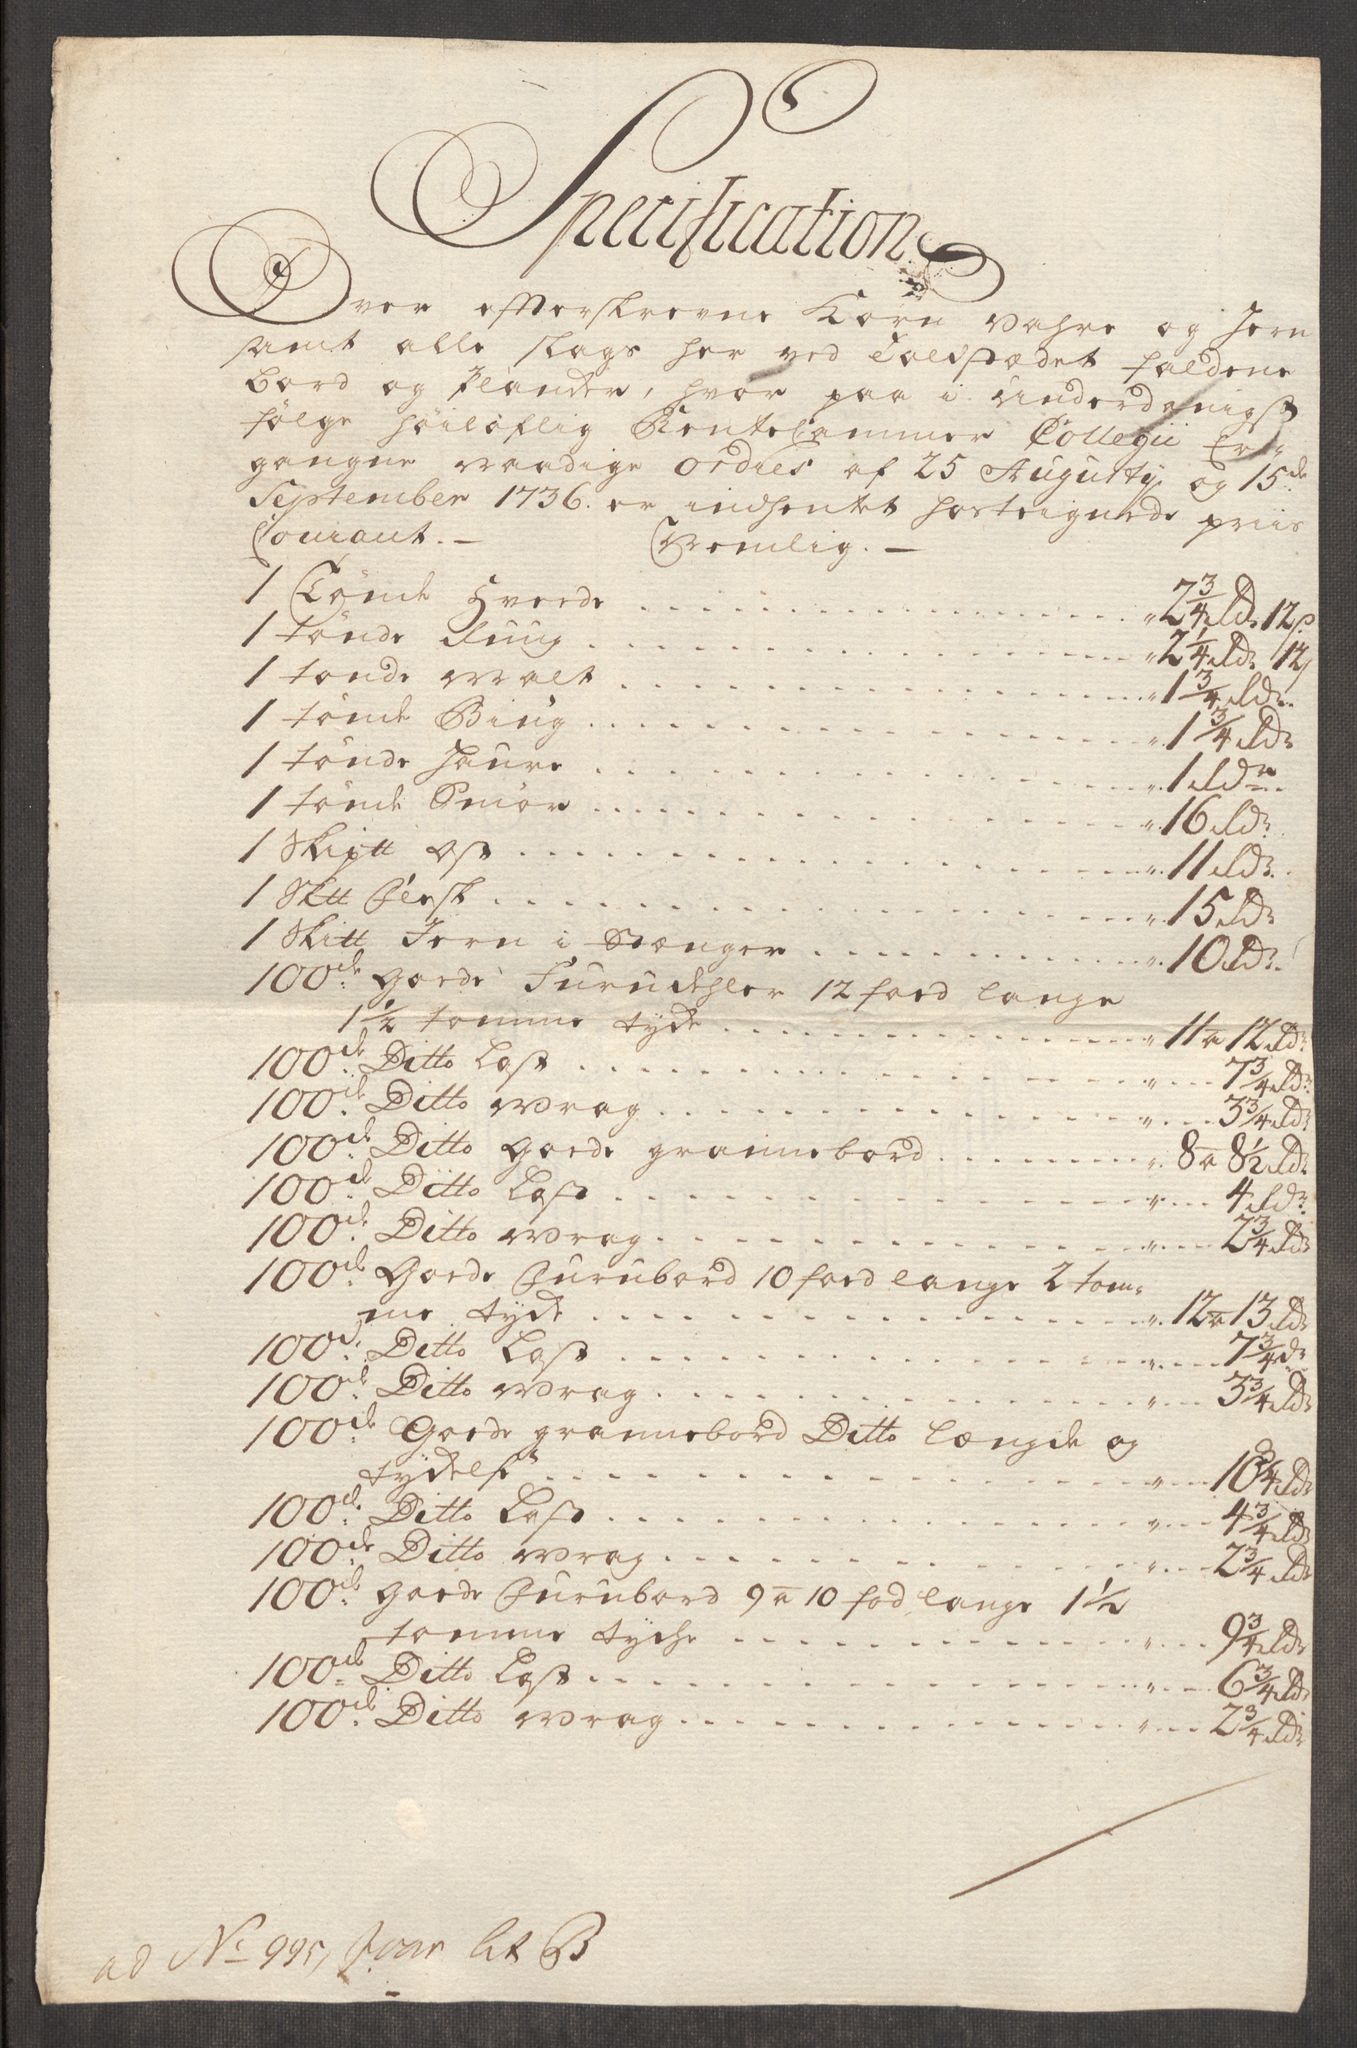 Specification
Over efterskrevne Korn Vahre og Jern
samt alle slags her ved Toldstædet faldene
bord og Plancker, hvor paa i underdanigst
følge høiløflig RenteCammer Collegii Er-
gangne naadige ordres af 25 Augusty og 15de
September 1736. er indhentet hosteignede priis
Courant. — Nemlig. —
1 Tønde Hvede " 2 3/4 rdr 12 s
1 tønde Rug " 2 1/4 rdr 12 s
1 tønde Malt " 1 3/4 rdr
1 tønde Biug " 1 3/4 rdr
1 tønde Haure " 1 rdr
1 tønde Smør " 16 rdr
1 Skiptt Ost " 11 rdr
1 Sktt Flesk " 15 rdr
1 Skitt Jern i Stænger " 10 rdr
100de goede Furudehler 12 foed lange
1 1/2 tomme tyde " 11 a 12 rdr
100de Ditto Last " 7 3/4 rdr
100de Ditto Wrag " 3 3/4 rdr
100de Ditto goede grannebord " 8 a 8 1/2 rdr
100de Ditto Last " 4 rdr
100de Ditto Wrag " 2 3/4 rdr
100de Goede Furubord 10 foed lange 2 tom-
me tyde " 12 a 13 rdr
100de Ditto Last " 7 3/4 rdr
100de Ditto Wrag " 3 3/4 rdr
100de Goede grannebord Ditto længde og
tydelse " 10 3/4 rdr
100de Ditto Last " 4 3/4 rdr
100de Ditto Wrag " 2 3/4 rdr
100de goede Furubord 9 a 10 fod lange 1 1/2
tomme tyche " 9 3/4 rdr
100de Ditto Last " 6 3/4 rdr
100de Ditto Wrag " 2 3/4 rdr
ad No 995, Lit B